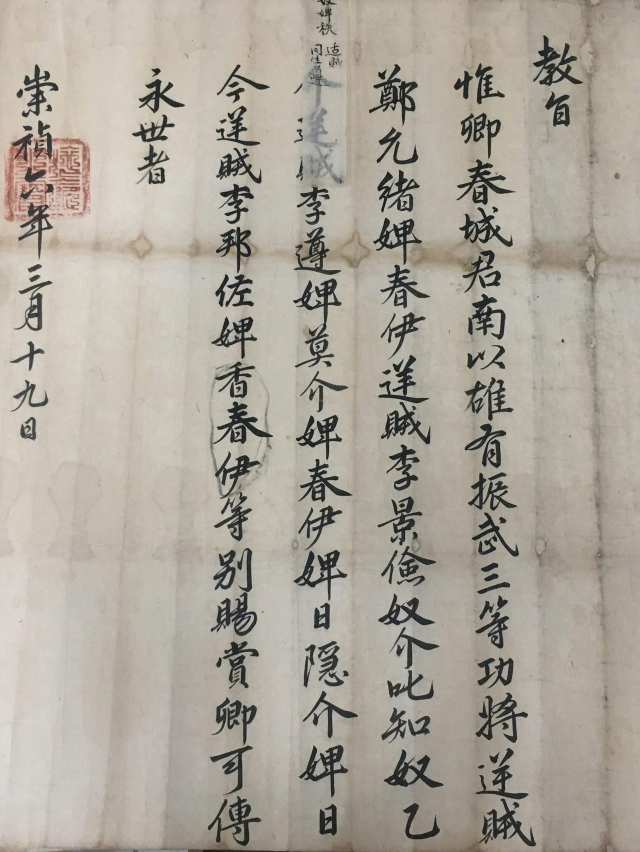 教旨
惟卿春城君南以雄有振武三等功將逆賊
鄭允緒婢春伊逆賊李景儉奴介叱知奴乙
逆賊李遵婢莫介婢春伊婢日隱介婢日
今逆賊李邦佐婢香春伊等別賜賞卿可傳
永世者
崇禎六年三月十九日